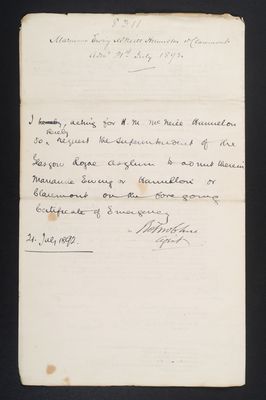 8311
Marianne Ewing McNeill Hamilton or Claremont
Adm. 21st July 1892.
I hereby, acting for H. M. McNeill Hamilton
do hereby request the Superintendent of the
Glasgow Royal Asylum to admit therein
Marianne Ewing or Hamilton or
Claremont on the foregoing
Certificate of Emergency
Agent
21. July 1892.